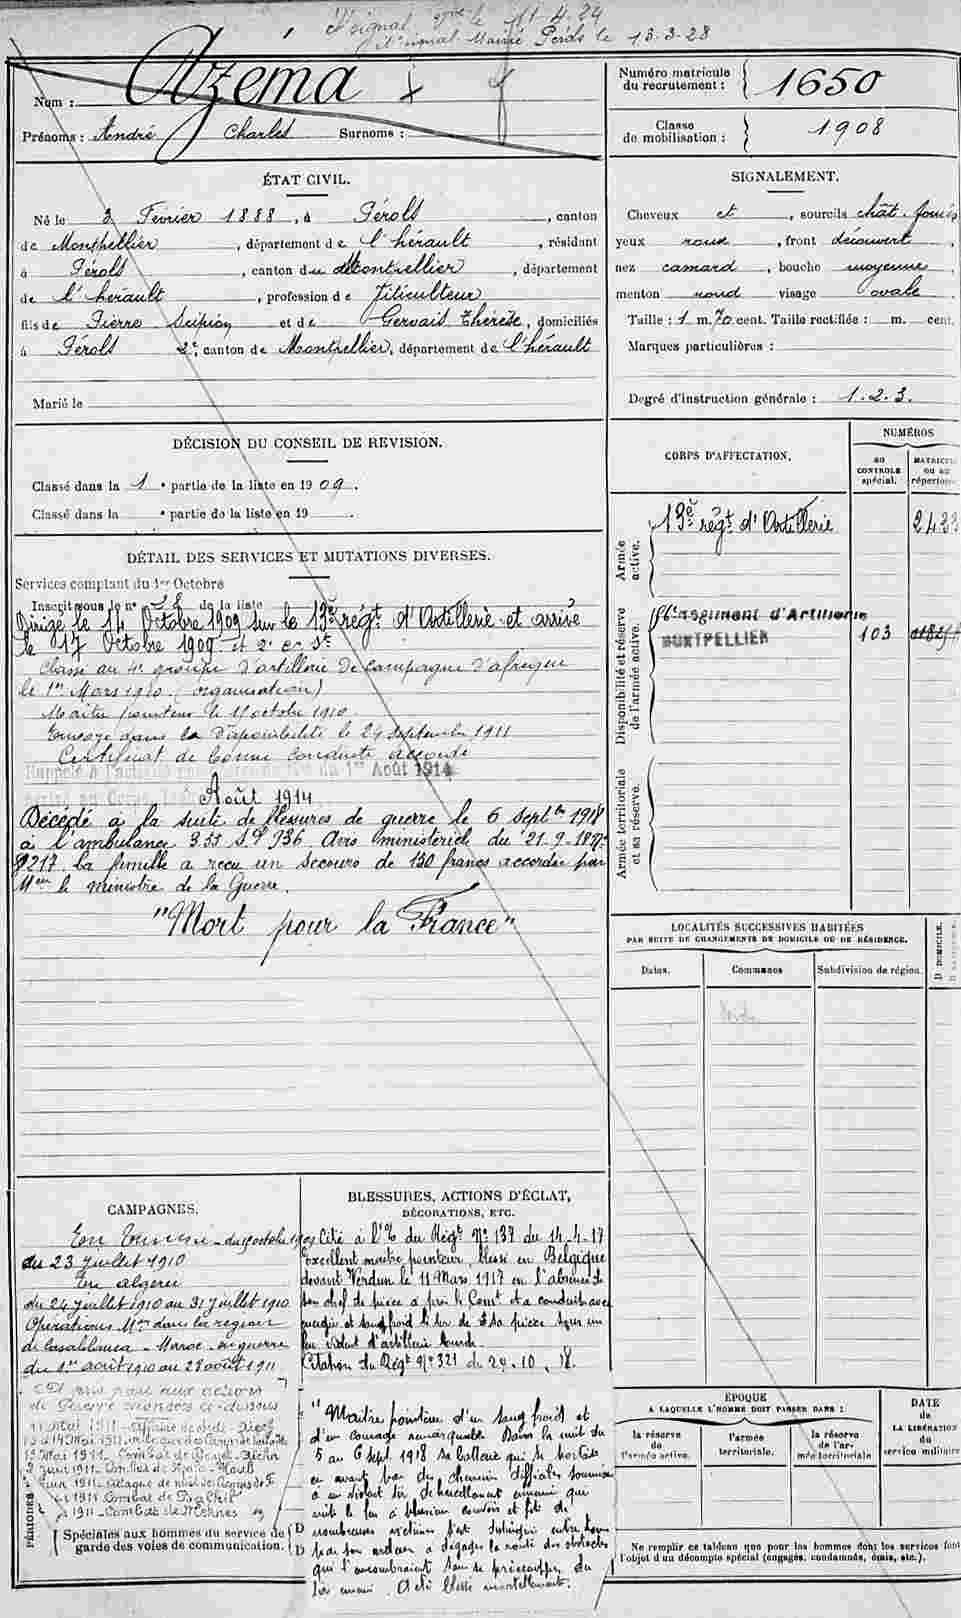 le 11-4-24
Mairie Pérols le 13-3-28
Nom : Azéma
Prénoms : André Charles Surnoms :
Numéro matricule
du recrutement : 1650
Classe
de mobilisation : 1908
ÉTAT CIVIL.
Né le 3 Février 1888, à Pérols, canton
de Montpellier, département de l'hérault, résidant
à Pérols, canton du Montpellier, département
de l'hérault, profession de Viticulteur
fils de Pierre Scipion et de Gervais Thérèse, domiciliés
à Pérols 2e, canton de Montpellier, département de l'hérault
Marié le
SIGNALEMENT.
Cheveux et, sourcils chât.
yeux roux, front découvert,
nez camard, bouche moyenne
menton rond visage ovale.
Taille : 1 m. 70 cent. Taille rectifiée : m. cent.
Marques particulières :
Degré d'instruction générale : 1.2.3.
DÉCISION DU CONSEIL DE REVISION.
Classé dans la 1e partie de la liste en 1909.
Classé dans la e partie de la liste en 19 .
DÉTAIL DES SERVICES ET MUTATIONS DIVERSES.
Services comptant du 1er Octobre
Inscrit sous le n° de la liste
Dirigé le 14 Octobre 1909 sur le 13e régt d'Artillerie et arrivé
le 17 Octobre 1909 et 2e cr St
Classé au 4e groupe d'artillerie de campagne d'afrique
le 1er Mars 1910 (organisation)
Maître pointeur le octobre 1910
Envoyé dans la Disponibilité le 24 septembre 1911
Certificat de bonne conduite accordé
Rappelé à l'activité du 1er Août 1914
Août 1914
Décédé à la suite de blessures de guerre le 6 septbre 1918
à l'ambulance 3.55 S.P. 936. Avis ministériel du 21-9-18 N°
8217. La famille a reçu un secours de 150 francs accordée par
Meur le ministre de la Guerre.
"Mort pour la France"
CORPS D'AFFECTATION.
NUMÉROS
au
CONTROLE
spécial.
MATRICULE
ou au
répertoire
Armée
active.
13e régt d'Artillerie
2433
Disponibilité et réserve
de l'armée active.
Régiment d'Artillerie
MONTPELLIER
103
Armée territoriale
et sa réserve.
LOCALITÉS SUCCESSIVES HABITÉES
PAR SUITE DE CHANGEMENTS DE DOMICILE OU DE RÉSIDENCE.
Dates.
Communes
Subdivision de région.
D DOMICILE.
CAMPAGNES.
En Tunisie du octobre 1909
au 23 Juillet 1910
En algérie
du 24 Juillet 1910 au 31 Juillet 1910
Opérations Mres dans la région
de Casablanca - Maroc - en guerre
du 1er août 1910 au 28 août 1911
A pris part aux actions
de Guerre énoncées ci-dessous
Mai 1911 - Affaire de
Mai 1911 -
Mai 1911 - Combat de
Juin 1911 - Combat de
Juin 1911 - Attaque de nuit du
1911 Combat de
1911 - Combat de Meknès
PÉRIODES
Spéciales aux hommes du service de
garde des voies de communication.
BLESSURES, ACTIONS D'ÉCLAT,
DÉCORATIONS, ETC.
Cité à l'O. du Régt N° 137 du 14-4-17
Excellent maître pointeur, blessé en Belgique
devant Verdun le 11 Mars 1917 en l'absence de
son chef de pièce a pris le Comt et a conduit avec
énergie et sangfroid le tir de sa pièce sous un
feu violent d'artillerie lourde.
Citation du Régt N° 321 du 29.10.18.
"Maître pointeur d'un sang froid et
d'un courage remarquable. Dans la nuit du
5 au 6 sept. 1918 sa batterie qui se portait
en avant par des chemins difficiles soumise
à un violent tir de harcèlement ennemi qui
mit le feu à plusieurs caissons et fit de
nombreuses victimes s'est distingué entre tous
par son ardeur à dégager la route des obstacles
qui l'encombraient sans se préoccuper du
tir ennemi. A été blessé mortellement.
ÉPOQUE
A LAQUELLE L'HOMME DOIT PASSER DANS :
la réserve
de
l'armée active.
l'armée
territoriale.
la réserve
de l'ar-
mée territoriale
DATE
de
LA LIBÉRATION
du
service militaire
Ne remplir ce tableau que pour les hommes dont les services font
l'objet d'un décompte spécial (engagés, condamnés, omis, etc.).